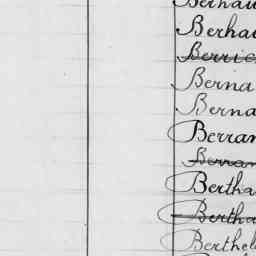 Berhau
Berha
Berric
Berna
Berna
Berran
Berran
Bertha
Bertha
Berthel